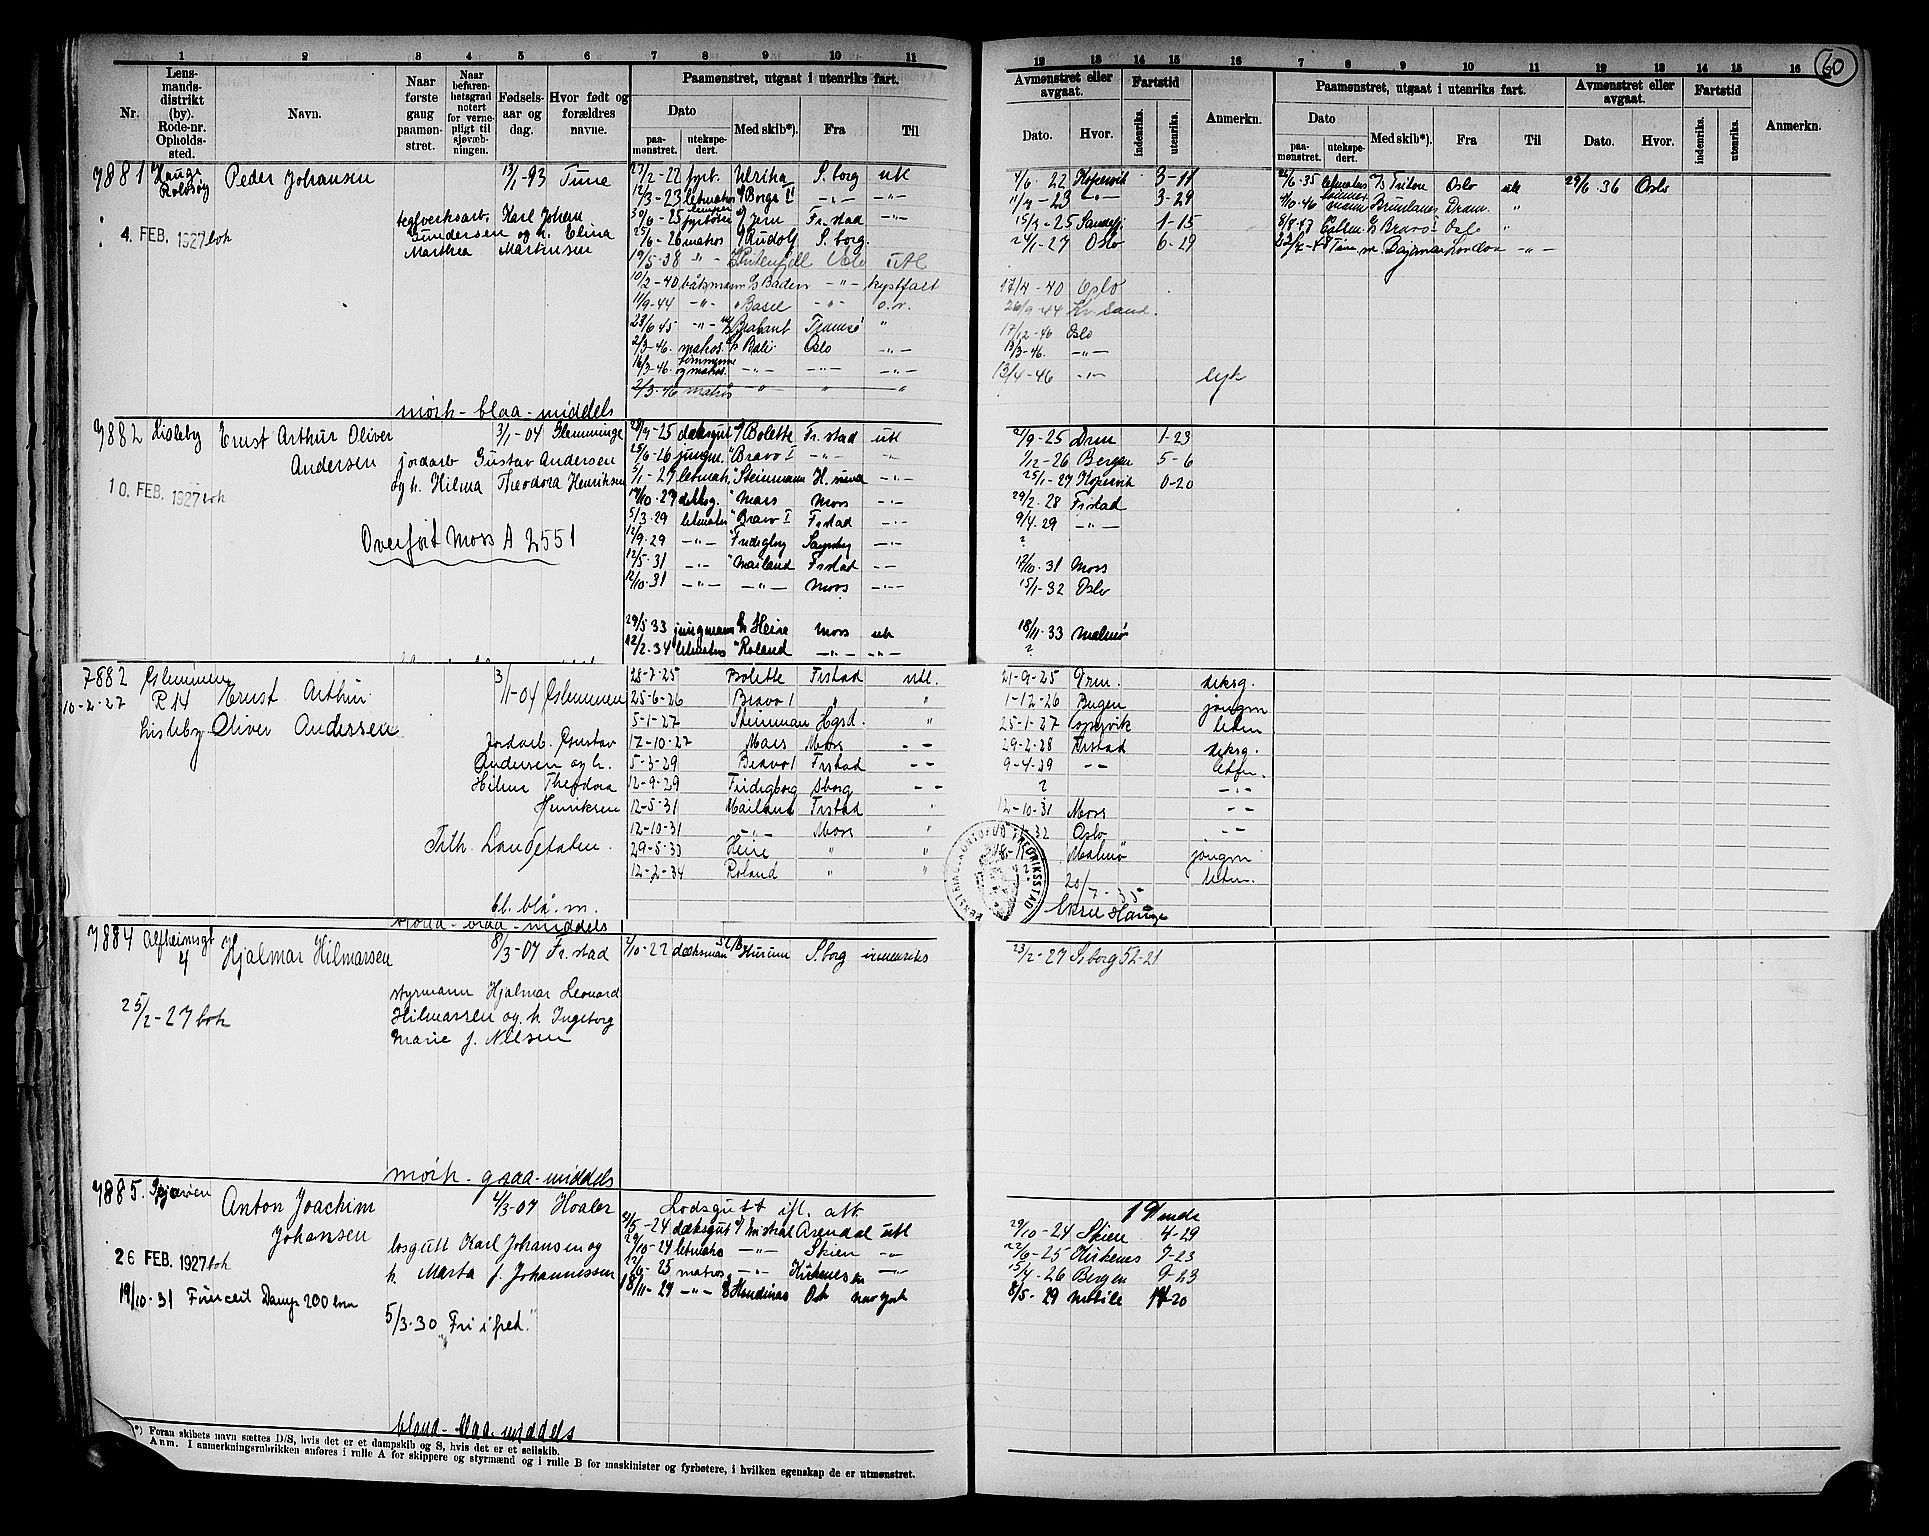 60
1 2 3 4 5 6 7 8 9 10 11
12 13 14 15 16 7 8 9 10 11 12 13 14 15 16
Nr. Lensmandsdistrikt (by). Rode-nr. Opholdssted. Navn. Naar første gang paamønstret. Naar befarenhetsgrad notert for vernepligt til sjøvæbningen. Fødselsaar og dag. Hvor født og forældres navne. Paamønstret, utgaat i utenriks fart. Dato paamønstret. utekspedert. Med skib*). Fra Til
Avmønstret eller avgaat. Dato. Hvor. Fartstid indenriks. utenriks. Anmerkn. Paamønstret, utgaat i utenriks fart. Dato paamønstret. utekspedert. Med skib*). Fra Til Avmønstret eller avgaat. Dato. Hvor. Fartstid indenriks. utenriks. Anmerkn.
7881 Hauge Rolvsøy Peder Johansen 13/1-93 Tune
teglverksarb. Karl Johan
Gundersen og h. Elina
Marthea Martinsen
4. FEB. 1927 boh
23/2-22 fyrb. Ulrika S.borg utl 4/6-22 Kopervik 3-11
12/3-23 letmatros Borgs II -"- -"- 11/7-23 -"- 3-29
30/6-25 fyrbøter Jern Fr.stad -"- 15/7-25 Sandefj. 1-15
25/6-26 matros Rudolf S.borg. 24/1-27 Oslo 6-29
19/5-38 -"- Oslo utl
10/2-40 båtsmann Baden -"- kystfart 17/4-40 Oslo
11/9-44 -"- Basel -"- o.r. 26/9-44 Kr.sand.
23/6 45 -"- Brabant Tromsø " 17/12-46 Oslo
2/3-46. matros Bali Oslo -"- 13/3-46. -"-
16/3-46. tømmerm. og matros. -"- -"- -"- 13/4-46 -"- lyh
2/3-46 matros -"- " "
24/6-35 letmatros D/S Triton Oslo utl 29/6 36 Oslo
7/10-46 tømmermann Brimlanes Dram. "
8/8-47 Bravo I Oslo "
-"-
mørk - blaa - middels
7882 Lisleby Ernst Arthur Oliver 3/1-04 Glemminge
Andersen jordarb Gustav Andersen
og h. Hilma Theodora Henriksen
10. FEB. 1927 boh
Overført Moss A 2551
28/7-25 dæksgut Bolette Fr.stad utl 21/9-25 Drm 1-23
25/6-26 jungm. " Bravo I -"- -"- 1/12-26 Bergen 5-6
5/1-27 letmatr. " Steinmann H.sund -"- 25/1-27 Kopervik 0-20
17/10-27 deksg. " Mars Moss -"- 29/2-28 Frstad
5/3-29 letmatros " Bravo I Frstad -"- 9/4-29 -"-
12/9-29 -"- " Fridigborg Sarpsborg -"- ?
12/5-31 -"- " Mailand Frstad -"- 12/10-31 Moss
12/10-31 -"- -"- Moss -"- 15/1-32 Oslo
29/5-33 jungmann Heire Moss utl 18/11-33 Malmø
12/2-34 letmatros " Roland -"- -"- ?
7882 Glemmen 3/1-04 Glemmen
10-2-27 R 14 Ernst Arthur
Lisleby Oliver Andersen
Jordarb. Gustav
Andersen og h.
Hilma Theodora
Henriksen
Tilh. Landetaten.
bl. blå. m.
28-7-25 Bolette Frstad utl. 21-9-25 Drm. deksg.
25-6-26 Bravo I " " 1-12-26 Bergen jungm
5-1-27 Steinman Hgsd. " 25-1-27 Kopervik letm
17-10-27 Mars Moss - " - 29-2-28 Frstad deksg.
5-3-29 Bravo I Frstad - " - 9-4-29 - " - letm.
12-9-29 Fridigborg Sborg - " - ? - " -
12-5-31 Mailand Frstad " 12-10-31 Moss - " -
12-10-31 - " - Moss " Oslo - " -
29-5-33 Heire " " Malmø jungm
12-2-34 Roland " " letm.
20/7-35
FREDRIKSSTAD
7884 Alfheimsgt 4 Hjalmar Hilmarsen 8/3-07 Fr.stad 2/10-22 dæksmann Hurum S.borg innenriks 23/2-27 S.borg 52-21
styrmann Hjalmar Leonard
Hilmarsen og h Ingeborg
Marie f. Nilsen
25/2-27 boh
mørk - graa - middels
7885. Spjærøen Anton Joachim 4/3-07 Hvaler
Johansen losgutt Karl Johansen og
h. Marta f. Johannessen
26 FEB. 1927 boh
19/10-31 Førercert Damp 200 tom
5/3-30 "Fri i fred."
Lodsgutt ifl. att. 19 mdr
21/5-24 dæksgut Mistral Arendal utl 29/10-24 Skien 4-29
29/10-24 letmatros -"- Skien -"- 22/6-25 Kirkenes 7-23
22/6-25 matros -"- Kirkenes -"- 15/4-26 Bergen 9-23
18/11-29 -"- Hardinas 8/5-29 Mobile 17-20
blond - blaa - middels
*) Foran skibets navn sættes D/S, hvis det er et dampskib og S, hvis det er et seilskib.
Anm. I anmerkningsrubrikken anføres i rulle A for skippere og styrmænd og i rulle B for maskinister og fyrbøtere, i hvilken egenskap de er utmønstret.